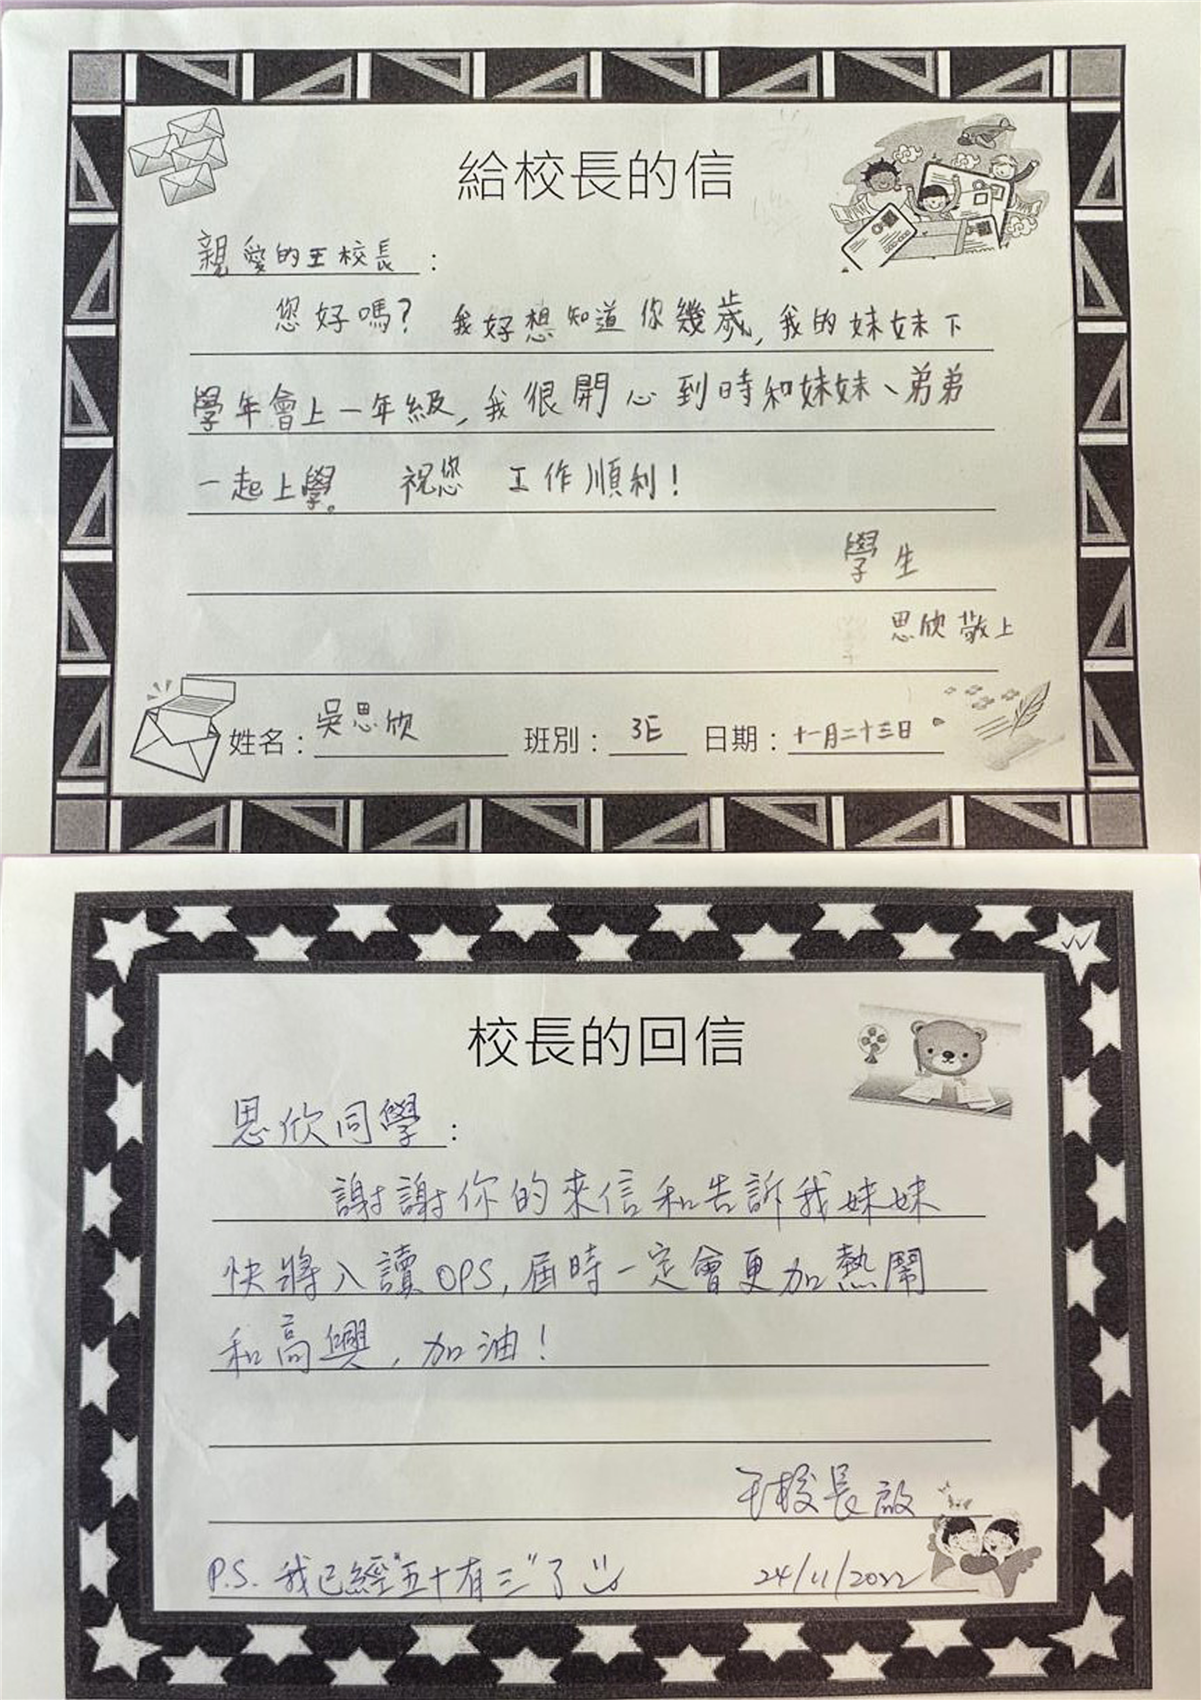 給校長的信
親愛的王校長:
您好嗎? 我好想知道你幾歲,我的妹妹下
學年會上一年級,我很開心到時和妹妹、弟弟
一起上學。 祝您 工作順利!
學生
思欣敬上
姓名:吳思欣 班別:3E 日期:十一月二十三日。
校長的回信
思欣同學:
謝謝你的來信和告訴我妹妹
快將入讀OPS,屆時一定會更加熱鬧
和高興,加油!
王校長啟
P.S. 我已經"五十有三"了 24/11/2022